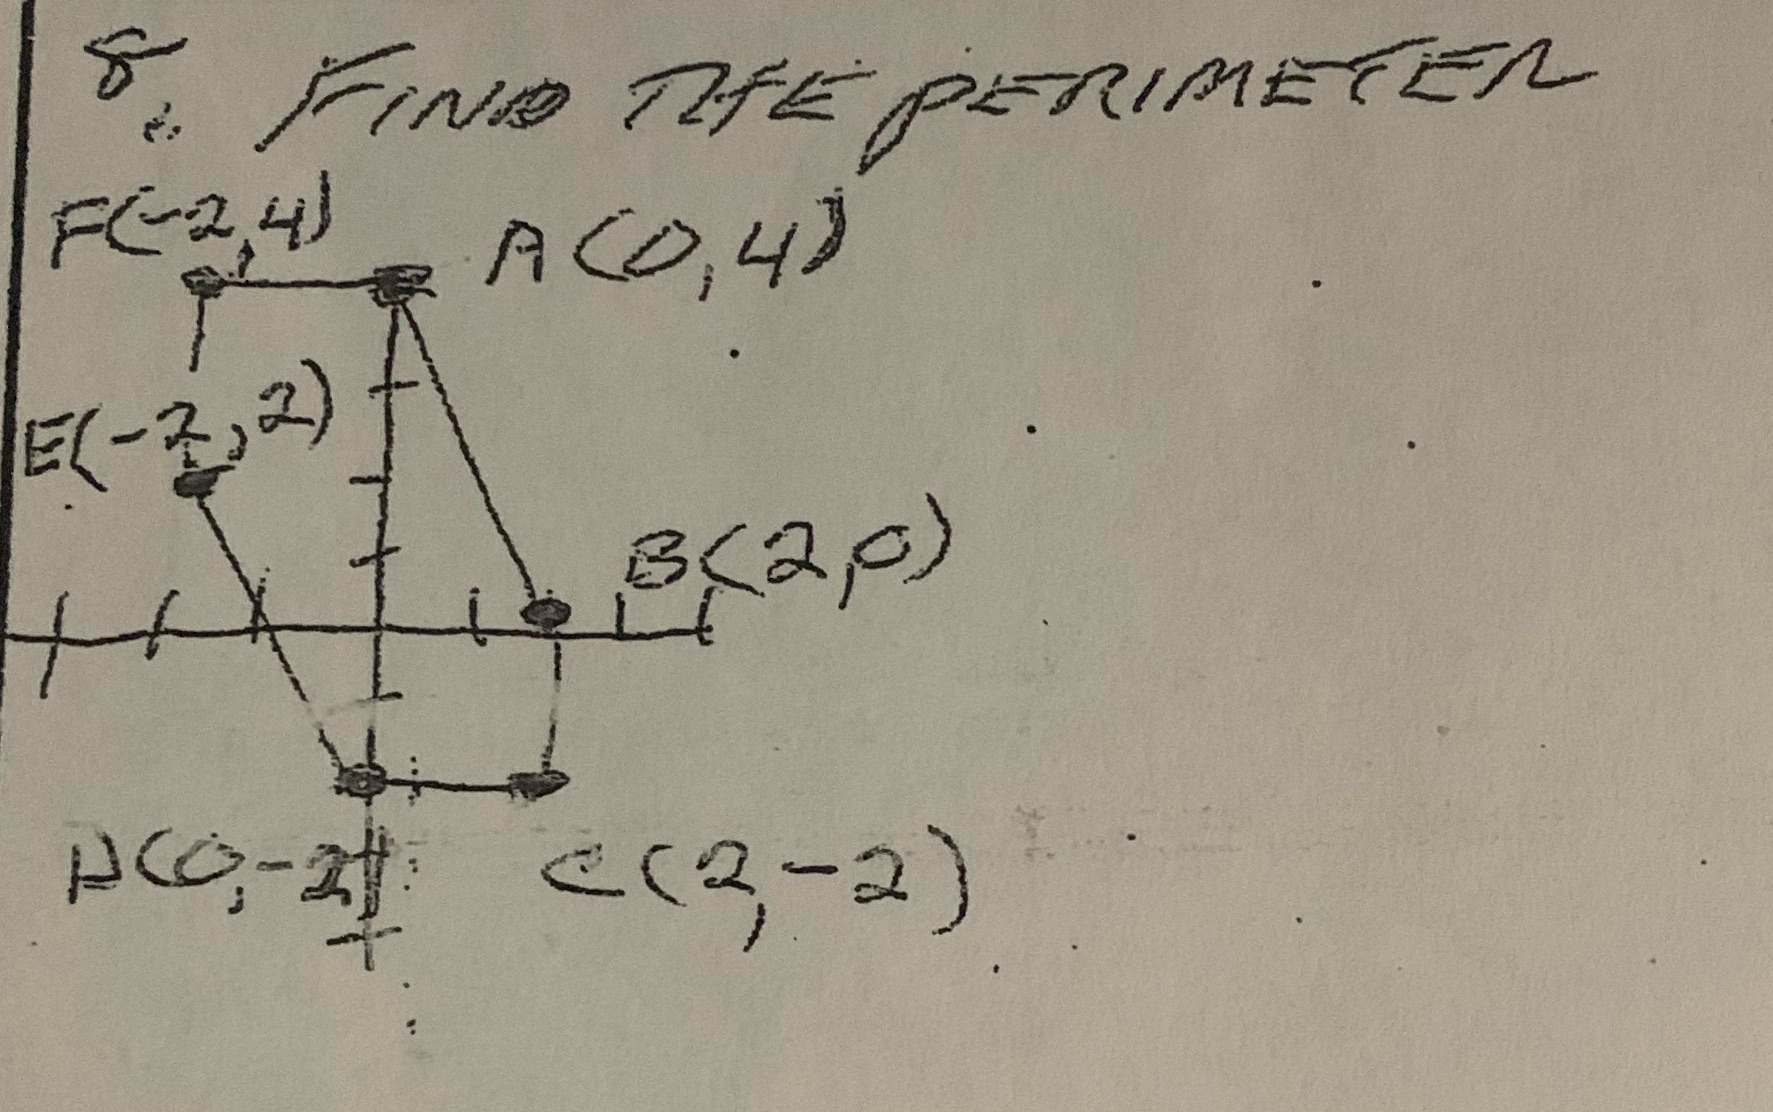 8. FIND THE PERIMETER
F(-2,4)
A(0,4)
E(-2,2)
B(2,0)
D(0,-2)
C(2,-2)